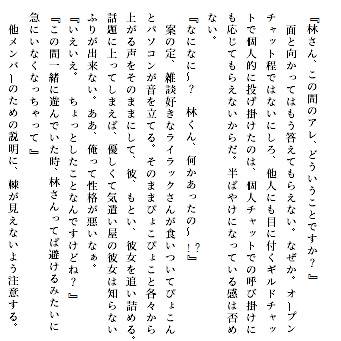 『林さん、この間のアレ、どういうことですか？』
　面と向かってはもう答えてもらえない、なぜか。オープン
チャット程ではないにしろ、他人にも目に付くギルドチャッ
トで個人的に投げ掛けたのは、個人チャットでの呼び掛けに
も応じてもらえないからだ。半ばやけになっている感は否め
ない。
『なになに～？　林くん、何かあったの～！？』
　案の定、雑談好きなライラックさんが食いついてぴょこん
とパソコンが音を立てる。そのままぴょこぴょこと各々から
上がる声をそのままにして、彼、もとい、彼女を追い詰める。
話題に上ってしまえば、優しくて気遣い屋の彼女は知らない
ふりが出来ない。ああ、俺って性格が悪いなぁ。
『いえいえ。　ちょっとしたことなんですけどね？』
『この間一緒に遊んでいた時、林さんってば避けるみたいに
急にいなくなっちゃって』
　他メンバーのための説明に、棘が見えないよう注意する。